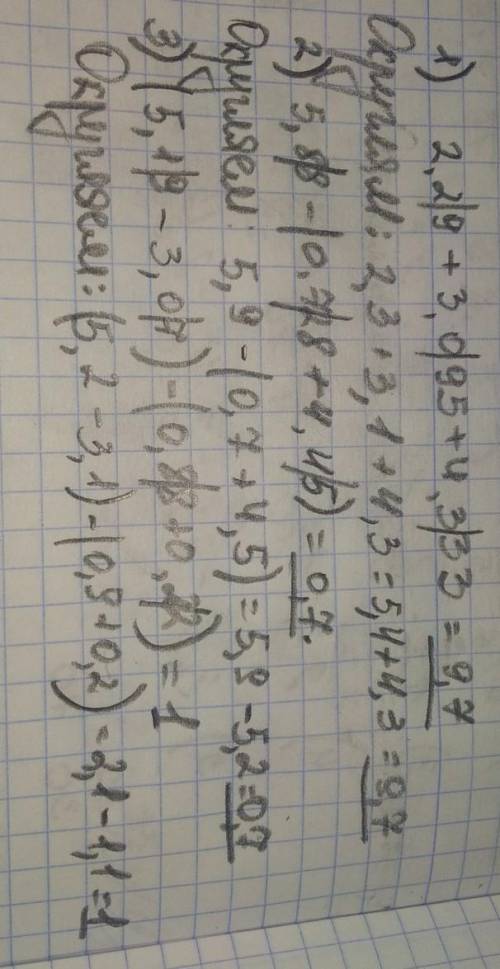 1) 2,2|9 + 3,0|95 + 4,3|33 = 9,7
Округляем: 2,3 + 3,1 + 4,3 = 5,4 + 4,3 = 9,7
2) 5,8|8 - (0,7|28 + 4,4|5) = 0,7.
Округляем: 5,9 - (0,7 + 4,5) = 5,9 - 5,2 = 0,7
3) (5,1|9 - 3,0|7) - (0,8|8 + 0,2|2) = 1
Округляем: (5,2 - 3,1) - (0,9 + 0,2) = 2,1 - 1,1 = 1